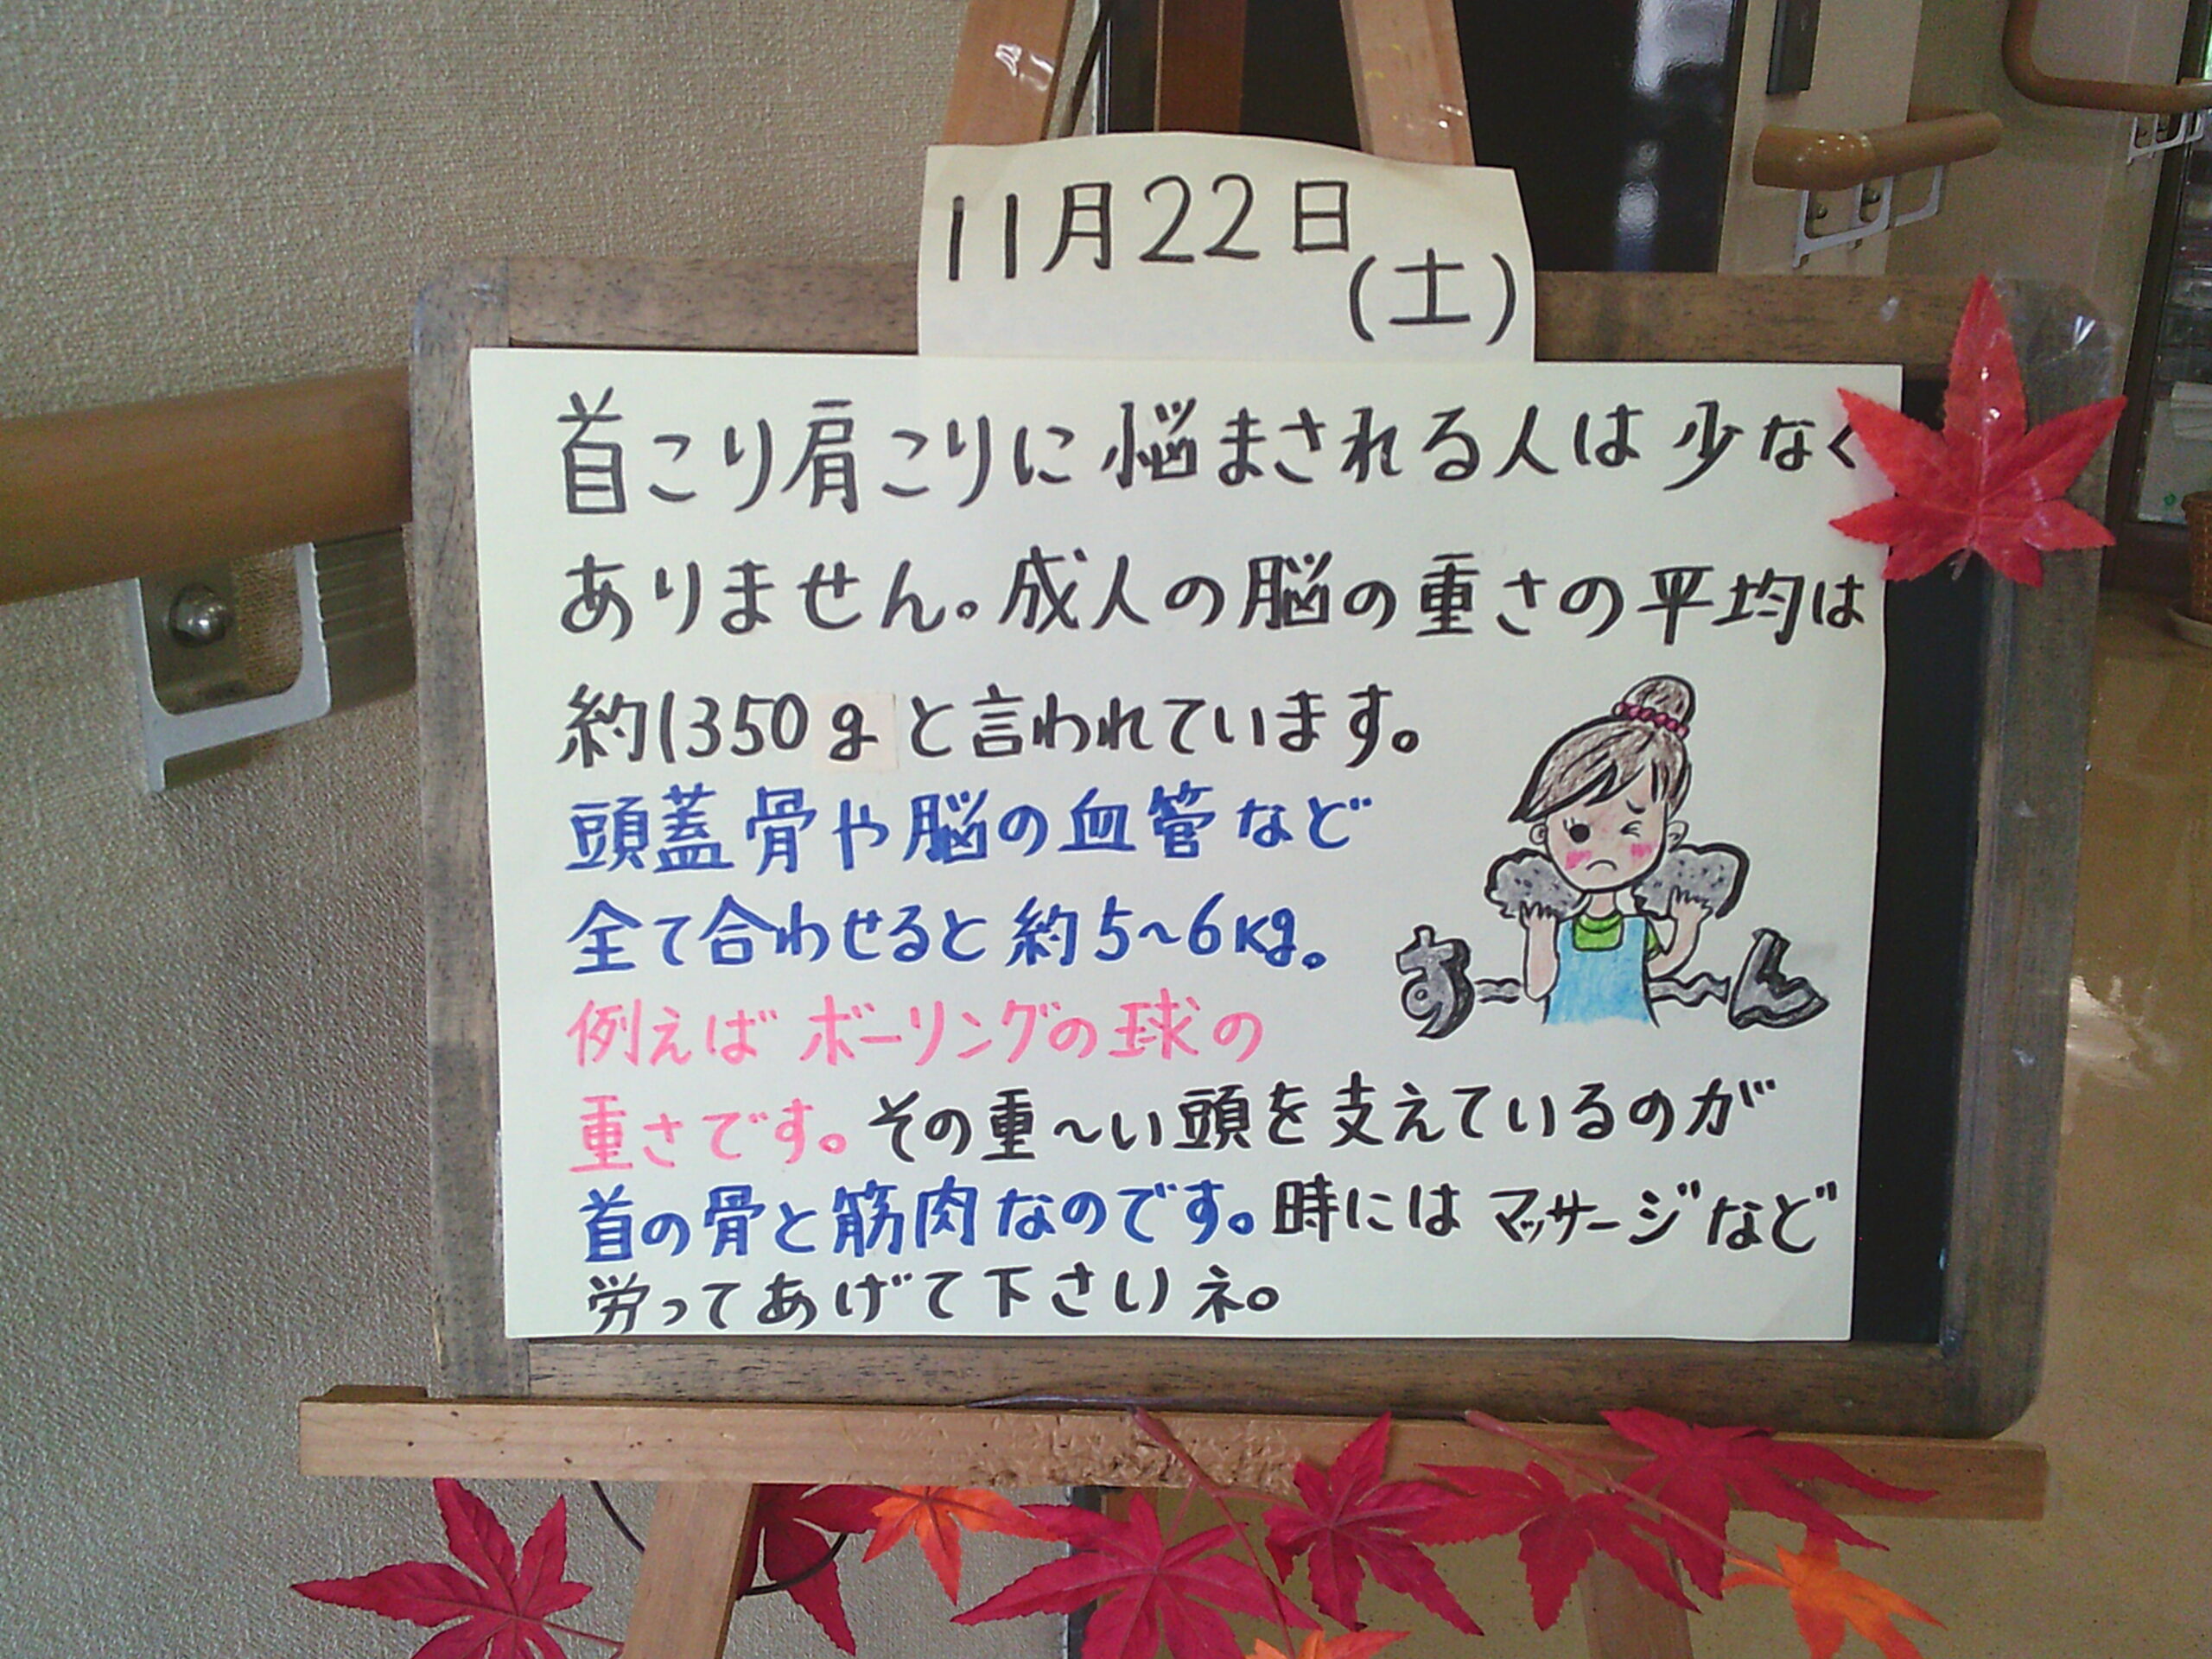 11月22日
(土)
首こり肩こりに悩まされる人は少なく
ありません。成人の脳の重さの平均は
約1350gと言われています。
頭蓋骨や脳の血管など
全て合わせると約5~6kg。
ずーん
例えばボーリングの球の
重さです。その重~い頭を支えているのが
首の骨と筋肉なのです。時にはマッサージなど
労ってあげて下さいネ。